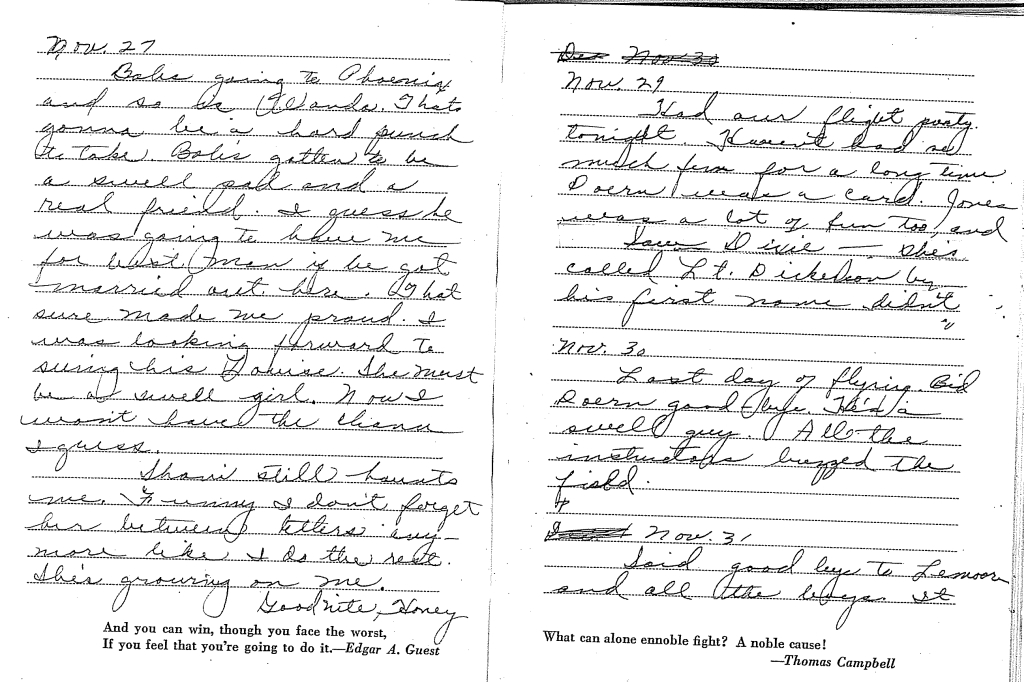 Nov. 27
Bobs going to Phoenix
and so is Wanda. Thats
gonna be a hard punch
to take. Bob's gotten to be
a swell pal and a
real friend. I guess he
was going to have me
for best man if he got
married out here. That
sure made me proud. I
was looking forward to
seeing his Louise. She must
be a swell girl. Now I
won't have the chance
I guess.
still haunts
me. Funny I don't forget
her between letters any-
more like I do the rest.
She's growing on me.
Goodnite, Honey
And you can win, though you face the worst,
If you feel that you're going to do it.—Edgar A. Guest
Nov 30
Nov. 29
Had our flight party
tonight. Haven't had so
much fun for a long time.
Doern was a card. Jones
was a lot of fun too, and
Saw Dixie — She's
called Lt. Dickelson by
his first name didn't
Nov. 30
Last day of flying. Bid
Doern good-bye. He's a
swell guy. All the
instructors buzzed the
field.
Nov. 31
Said good bye to Lemoore
and all the boys. It
What can alone ennoble fight? A noble cause!
—Thomas Campbell